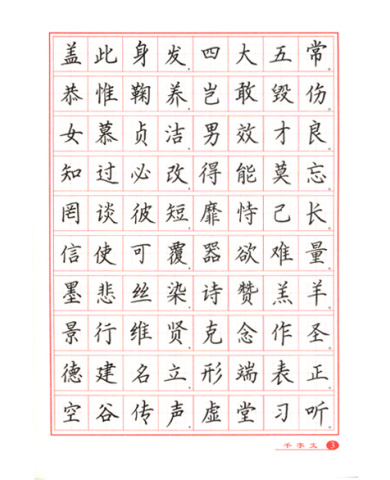 盖此身发四大五常
恭惟鞠养岂敢毁伤
女慕贞洁男效才良
知过必改得能莫忘
罔谈彼短靡恃己长
信使可覆器欲难量
墨悲丝染诗赞羔羊
景行维贤克念作圣
德建名立形端表正
空谷传声虚堂习听
千字文 3